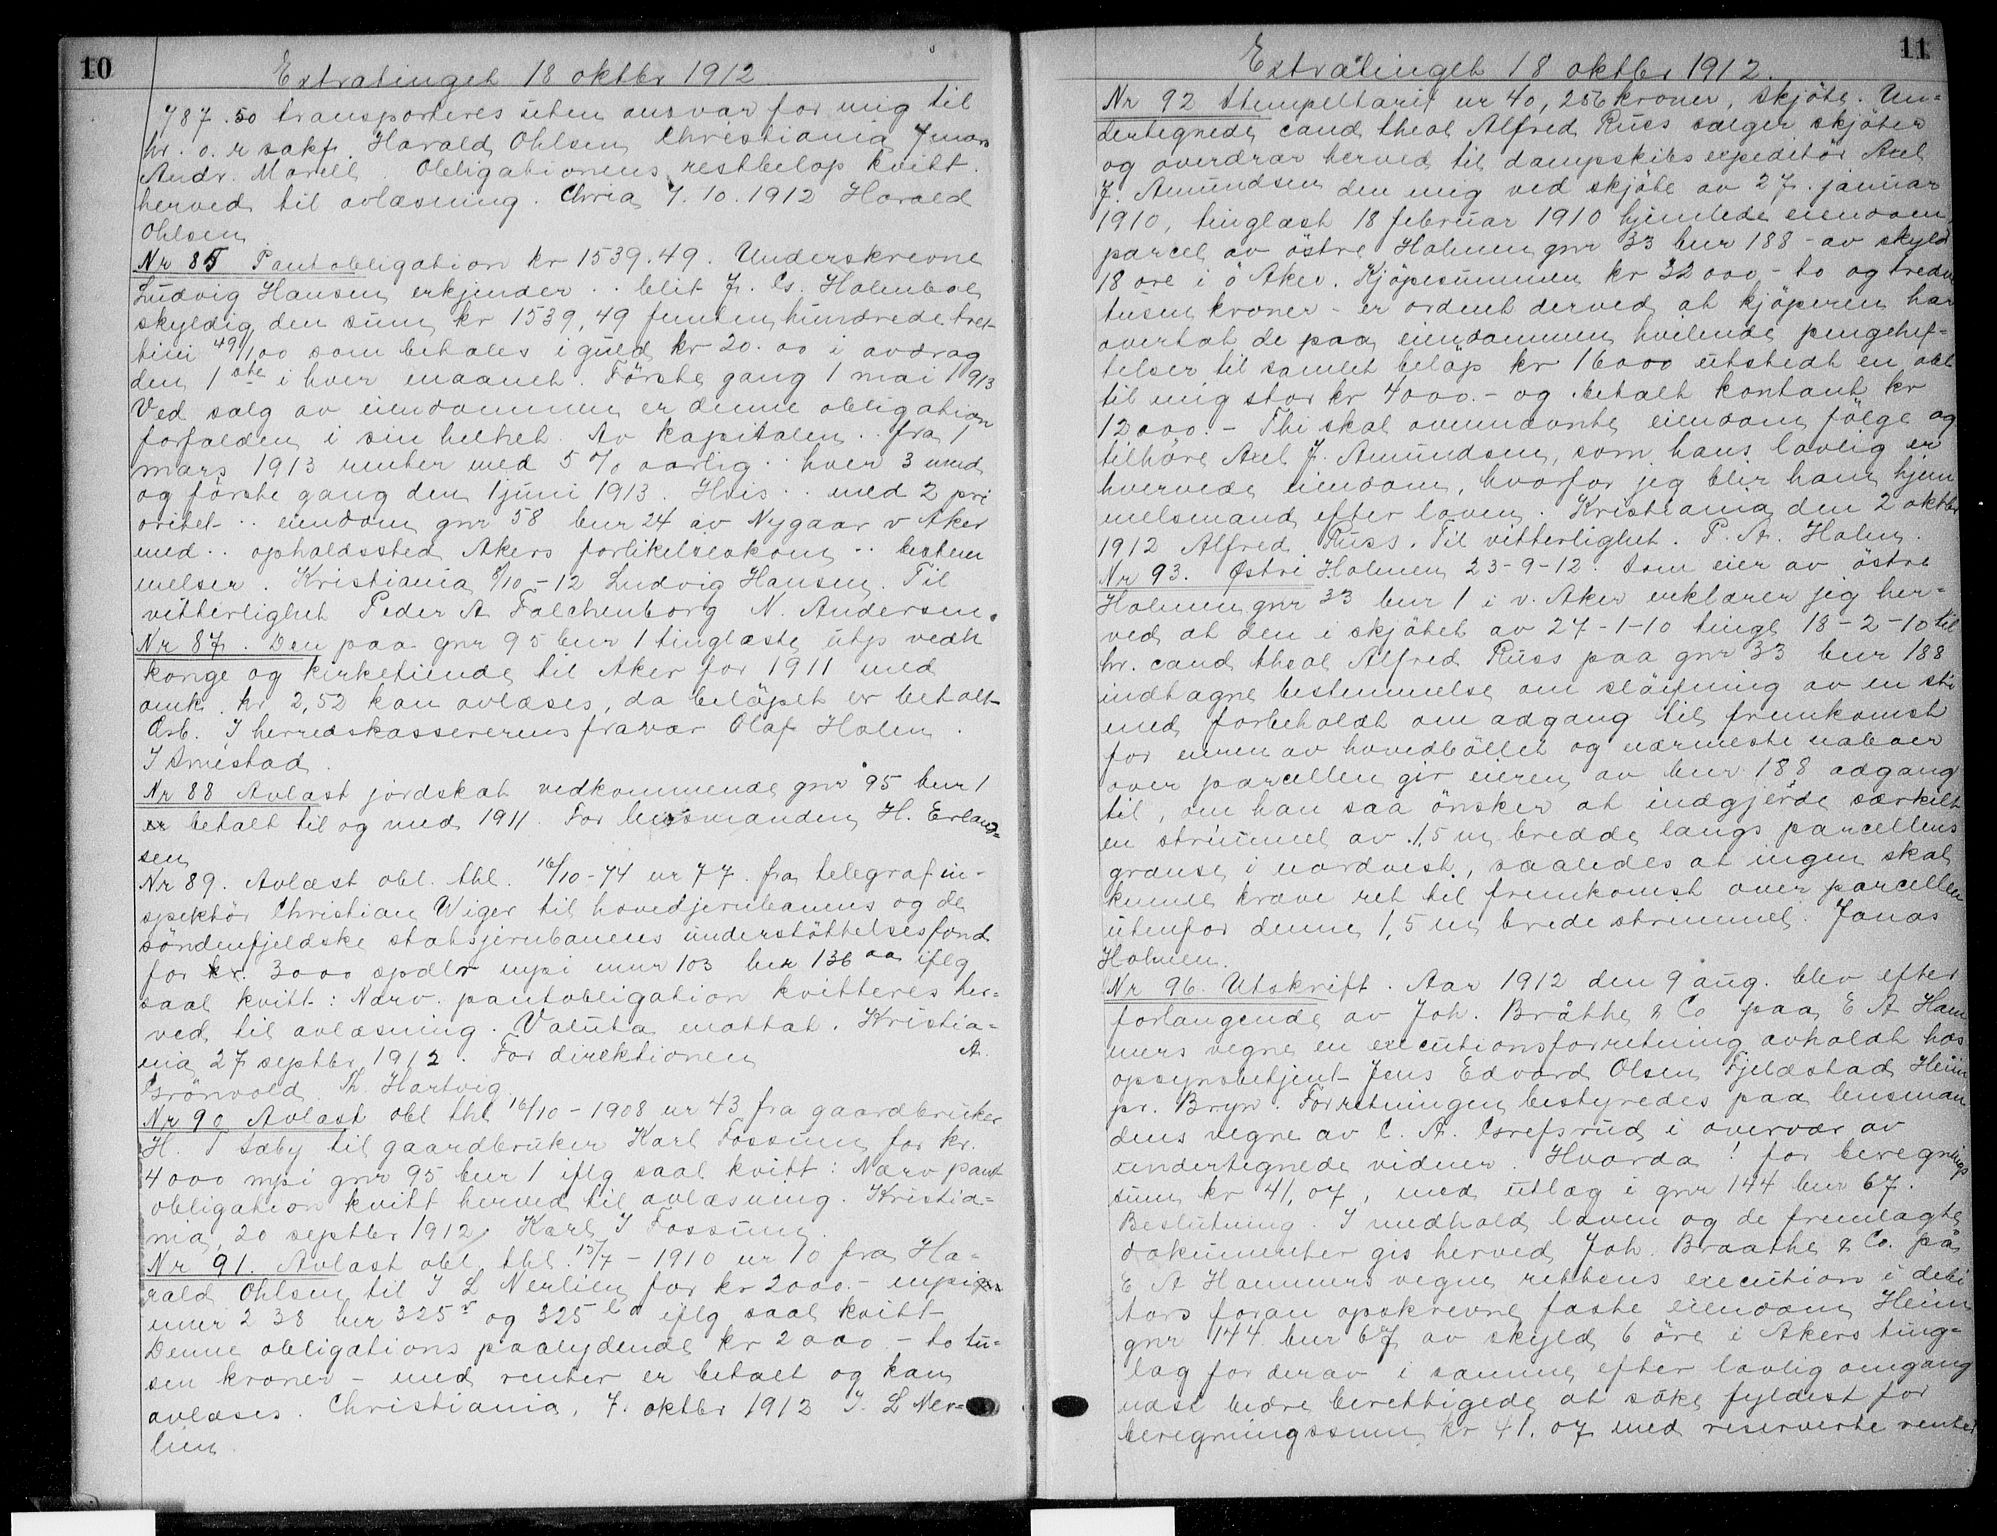 10
Extratinget 18 oktbr 1912
787.50 transporteres uten ansvar for mig til
hr. o.r sakf. Harald Ohlsen Christiania 7 mars
Andr. Morell. Obligationens restbeløp kvitt.
herved til avlæsning. Chria 7.10.1912 Harald
Ohlsen
Nr 85 Pantobligation kr 1539.49. Underskrevne
Ludvig Hansen erkjender .. blit J. Cs. Holmboe
skyldig den sum kr 1539,49 femten hundrede tret-
tini 49/100 som betales i guld kr 20.00 i avdrag
den 1ste i hver maanet. Første gang 1 mai 1913
Ved salg av eiendommen er denne obligation
forfalden i sin helhet. Av kapitalen .. fra 1
mars 1913 renter med 5 % aarlig .. hver 3 mnd
og første gang den 1 juni 1913. Hvis .. med 2 pri
oritet .. eiendom gnr 58 bnr 24 av Nygaar v Aker
med .. opholdssted Akers forlikelseskom .. bestem
melser. Kristiania 8/10-12 Ludvig Hansen. Til
vitterlighet Peder A Falchenborg N. Andersen.
Nr 87. Den paa gnr 95 bnr 1 tinglæste utp vedk
konge og kirketiende til Aker for 1911 med
omk. kr 2,52 kan avlæses, da beløpet er betalt
Ørb. I herredskassererens fravær Olaf Holm.
J Amestad.
Nr 88 Avlæst jordskat vedkommende gnr 95 bnr 1
er betalt til og med 1911. For lensmanden H. Erland-
sen
Nr 89. Avlæst obl. thl. 16/10-74 nr 77 fra telegrafin-
spektør Christian Wiger til hovedjernbanens og de
søndenfjeldske statsjernbanens understøttelsesfond
for kr. 3000 spdlr mpi mnr 103 bnr 136 aa iflg
saal kvitt: Nærv. pantobligation kvitteres her-
ved til avlæsning. Valuta mottat. Kristia-
nia 27 septbr 1912. For direktionen A.
Grönvold Th. Hartvig
Nr 90 Avlæst obl thl 16/10-1908 nr 43 fra gaardbruker
H. T Sæby til gaardbruker Karl Fossum for kr.
4000 mpi gnr 95 bnr 1 iflg saal kvitt: Nærv pant
obligation kvitt herved til avlæsning. Kristia-
nia 20 septbr 1912 Karl J Fossum.
Nr 91. Avlæst obl thl. 13/7-1910 nr 10 fra Ha-
rald Ohlsen til J L Nerlien for kr 2000.- mpi
mnr 238 bnr 325 r og 325 l a iflg saal kvitt
Denne obligations paalydende kr 2000 - to tu-
sen kroner - med renter er betalt og kan
avlæses. Christiania, 7. oktbr 1912 J. L Ner-
lien
11
Extratinget 18 oktbr 1912.
Nr 92 Stempeltarif nr 40, 256 kroner, skjøte. Un-
dertegnede cand theol Alfred Russ sælger skjøter
og overdrar herved til dampskibsexpeditör Axel
J. Amundsen den mig ved skjøte av 27. januar
1910, tinglæst 18 februar 1910 hjemlede eiendom,
parcel av östre Holmen gnr 33 bnr 188 - av skyld
18 øre i ö Aker. Kjöpesummen kr 32000 - to og tredve
tusen kroner - er ordnet derved at kjöperen har
overtat de paa eiendommen hvilende pengehef-
telser til samlet beløp kr 16000 utstedt en obl
til mig stor kr 4000.- og betalt kontant kr
12000.- Thi skal ovennævnte eiendom fölge og
tilhöre Axel J. Amundsen, som hans lovlig er
hvervede eiendom, hvorfor jeg blir hans hjem
melsmand efter loven. Kristiania den 2 oktbr
1912 Alfred Russ. Til vitterlighet. P. A. Holm.
Nr 93. Østre Holmen 23-9-12. Som eier av östre
Holmen gnr 33 bnr 1 i v. Aker erklærer jeg her-
ved at den i skjötet av 27-1-10 tingl 18-2-10 til
hr. cand theol Alfred Russ paa gnr 33 bnr 188
indtagne bestemmelse om sløifning av en sti
med forbeholdt om adgang til fremkomst
for eieren av hovedbøllet og nærmeste naboer
over parcellen gir eieren av bnr 188 adgang
til, om han saa önsker at indgjerde særkilt
en strimmel av 1,5 m bredde langs parcellens
grænse i nordvest, saaledes at ingen skal
kunne kræve ret til fremkomst over parcellen
utenfor denne 1,5 m brede strimmel. Jonas
Holmen.
Nr 96. Utskrift. Aar 1912 den 9 aug. blev efter
forlangende av Joh. Bråthe & Co paa E A Ham
mers vegne en executionsforretning avholdt hos
opsynsbetjent Jens Edvard Olsen Fjeldstad Heim
pr. Bryn. Forretningen bestyredes paa lensman
dens vegne av C. A. Grefsrud i overvær av
undertegnede vidner. Hvorda! for beregnings
sum kr 41,07, med utlæg i gnr 144 bnr 67.
Beslutning. I medhold loven og de fremlagte
dokumenter gis herved Joh. Braathe & Co. på
E A Hammers vegne rettens execution i debi
tors foran opskrevne faste eiendom Heim
gnr 144 bnr 67 av skyld 6 öre i Akers ting-
lag for derav i samme efter lovlig omgang
næst bedre berettigede at søke fyldest for
beregningssum kr 41.07 med reserverte renter